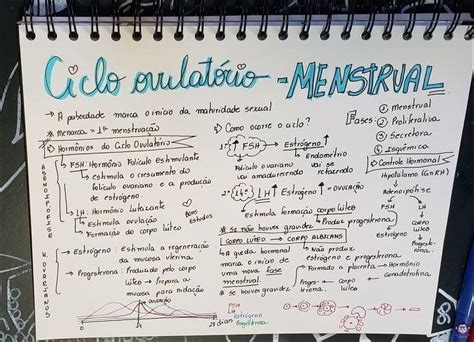 Ciclo ovulatório - MENSTRUAL
→ A puberdade marca o início da maturidade sexual
* menarca = 1ª menstruação
Hormônios do Ciclo Ovulatório
ADENOIPOFISE
→ FSH: Hormônio Folículo Estimulante
→ estimula o crescimento do
folículo ovariano e a produção
de estrógeno.
→ LH: Hormônio Luteizante
→ Estimula ovulação
→ Formação do corpo lúteo
Bons estudos
H. OVARIANOS
→ Estrógeno: Estimula a regeneração
da mucosa uterina
→ Progesterona: Produzido pelo corpo
lúteo → Prepara a
mucosa para nidação
ovulação
1
14
28 dias
FSH
LH
estrógeno
Progesterona
Como ocorre o ciclo?
1º ↑ FSH → Estrógeno ↑
Folículo ovariano
vai amadurecendo
→ Endométrio
vai se
refazendo
2º ↑ LH ↑ Estrógeno ↑ = ovulação
estimula formação corpo lúteo
→ Produz progesterona
* se não houver gravidez
CORPO LÚTEO → CORPO ALBICANS
↓ queda hormonal
marca o início de
uma nova fase
menstrual.
→ Não produz
estrógeno e progesterona
* se houver gravidez
→ Formado a placenta → Hormônio
Proges- ← Corpo ← gonadotrofina
terona lúteo
Fases:
① menstrual
② Proliferativa
③ Secretora
④ Isquêmica
Controle Hormonal
Hipotálamo (GnRH)
Adenoipófise
FSH
LH
Estrógeno
Corpo
lúteo
Progeste-
rona